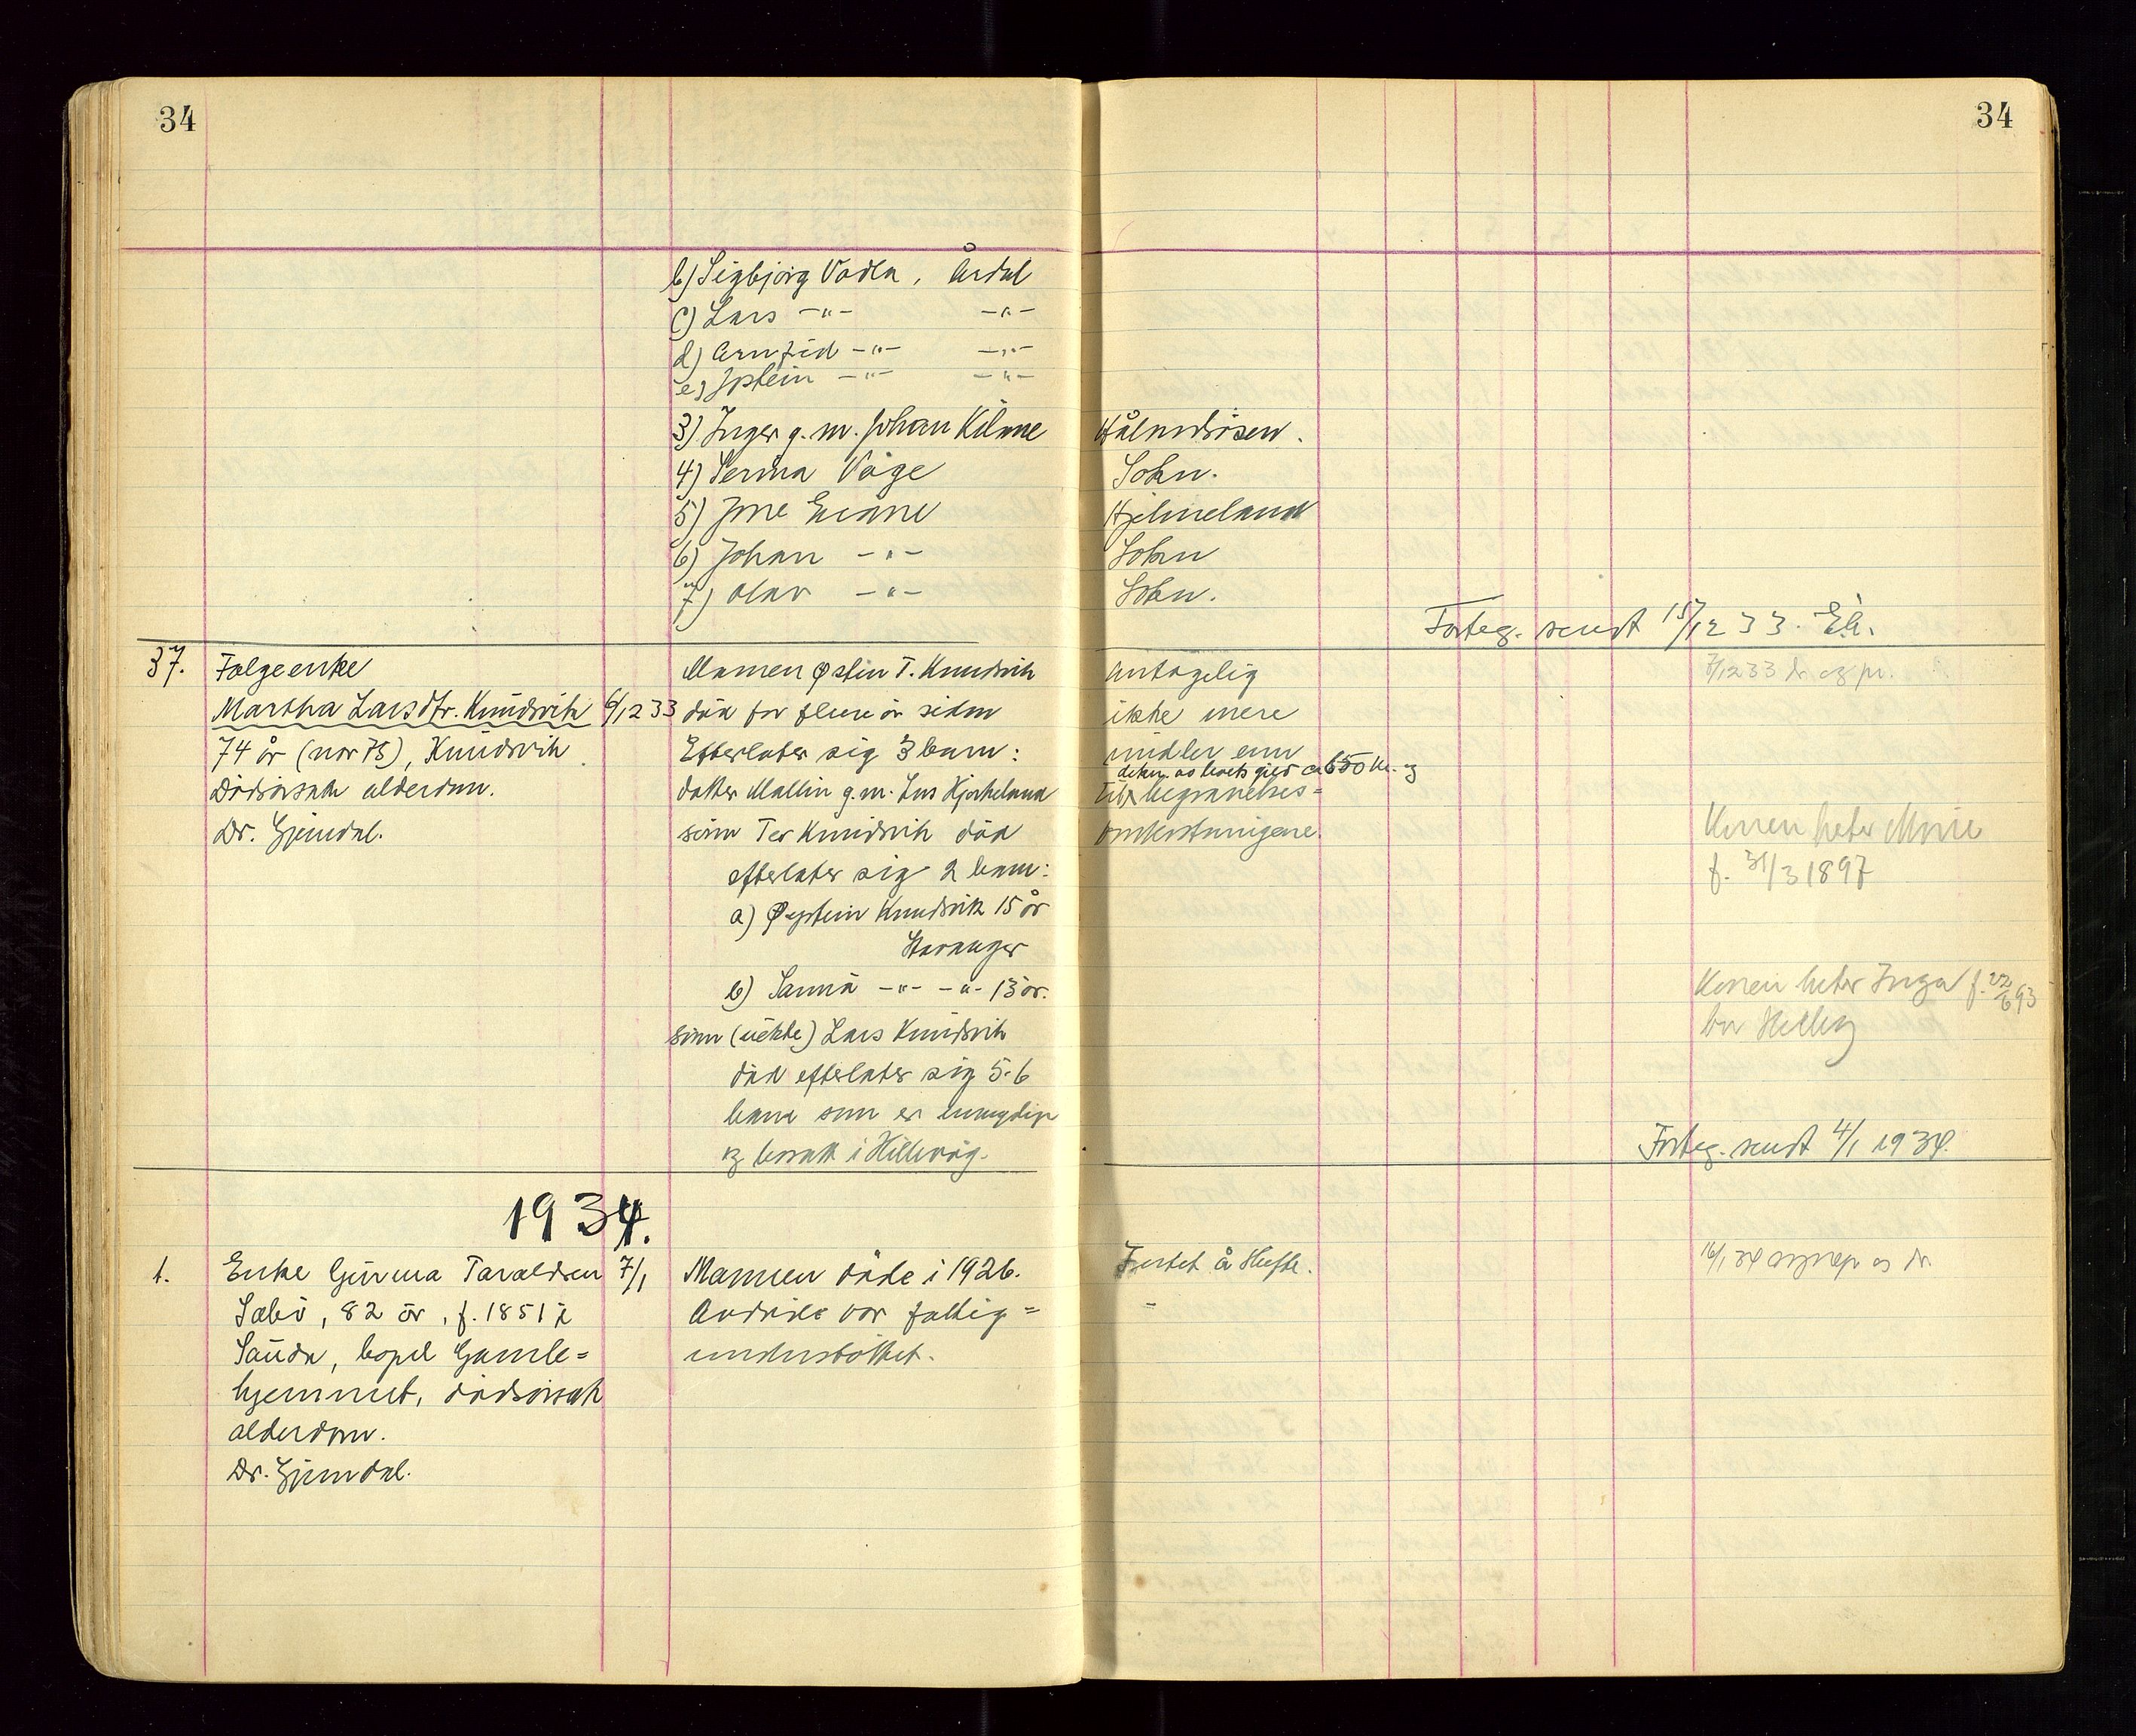 34
34
b) Sigbjørg Vadla, Årdal
c) Lars -"- -"-
d) Arnfrid -"- -"-
e) Jostein -"- -"-
3) Inger g. m. Johan Kilane
4) Serina Våge Sokn.
5) Jone Eiane Hjelmeland
6) Johan -"- Sokn
7) Olav -"- Sokn.
Forteg. sendt 15/12 33. Eh.
37. Følgeenke Mannen Østen T. Knudsvik Antagelig 7/12 33 dr og pr.
Martha Larsdtr. Knudsvik 6/12 33 død for flere år siden ikke mere
74 år (nær 75), Knudsvik. Efterlater sig 3 barn: midler enn
650 kr. og
Dødsårsak alderdom. datter Mallin g. m. Lars Hjorteland til begravelses=
Dr. Gjendal. sønn Tor Knudsvik død omkostningene. Konen heter Marie
efterlater sig 2 barn: f. 31/3 1897
a) Øystein Knudsvik 15 år
Stavanger
b) Sanna -"- -"- 13 år. Konen heter Inga f. 22/6 93
bor Hillevåg
sønn (uekte) Lars Knudsvik
død efterlater sig 5-6
barn som er umyndige
og bosatt i Hillevåg. Forteg. sendt 4/1 1934.
1934.
1. Enke Gurina Taraldsen 7/1 Mannen døde i 1926. Intet å skifte. 16/1 34
Sæbø, 82 år, f. 1851 i Avdøde var fattig=
Sauda, bopel Gamle= understøttet.
hjemmet, dødsårsak
alderdom.
Dr. Gjendal.